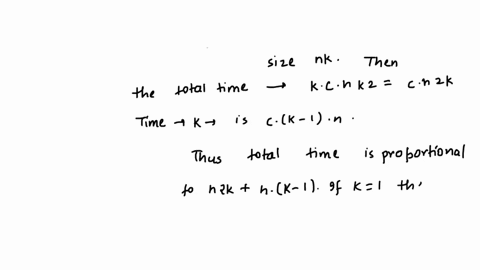 size nk. Then
the total time → k.c.nk2 = c.n2k
Time → K → is c.(k-1).n.
Thus total time is proportional
to n2k + n.(k-1). If k=1 th,